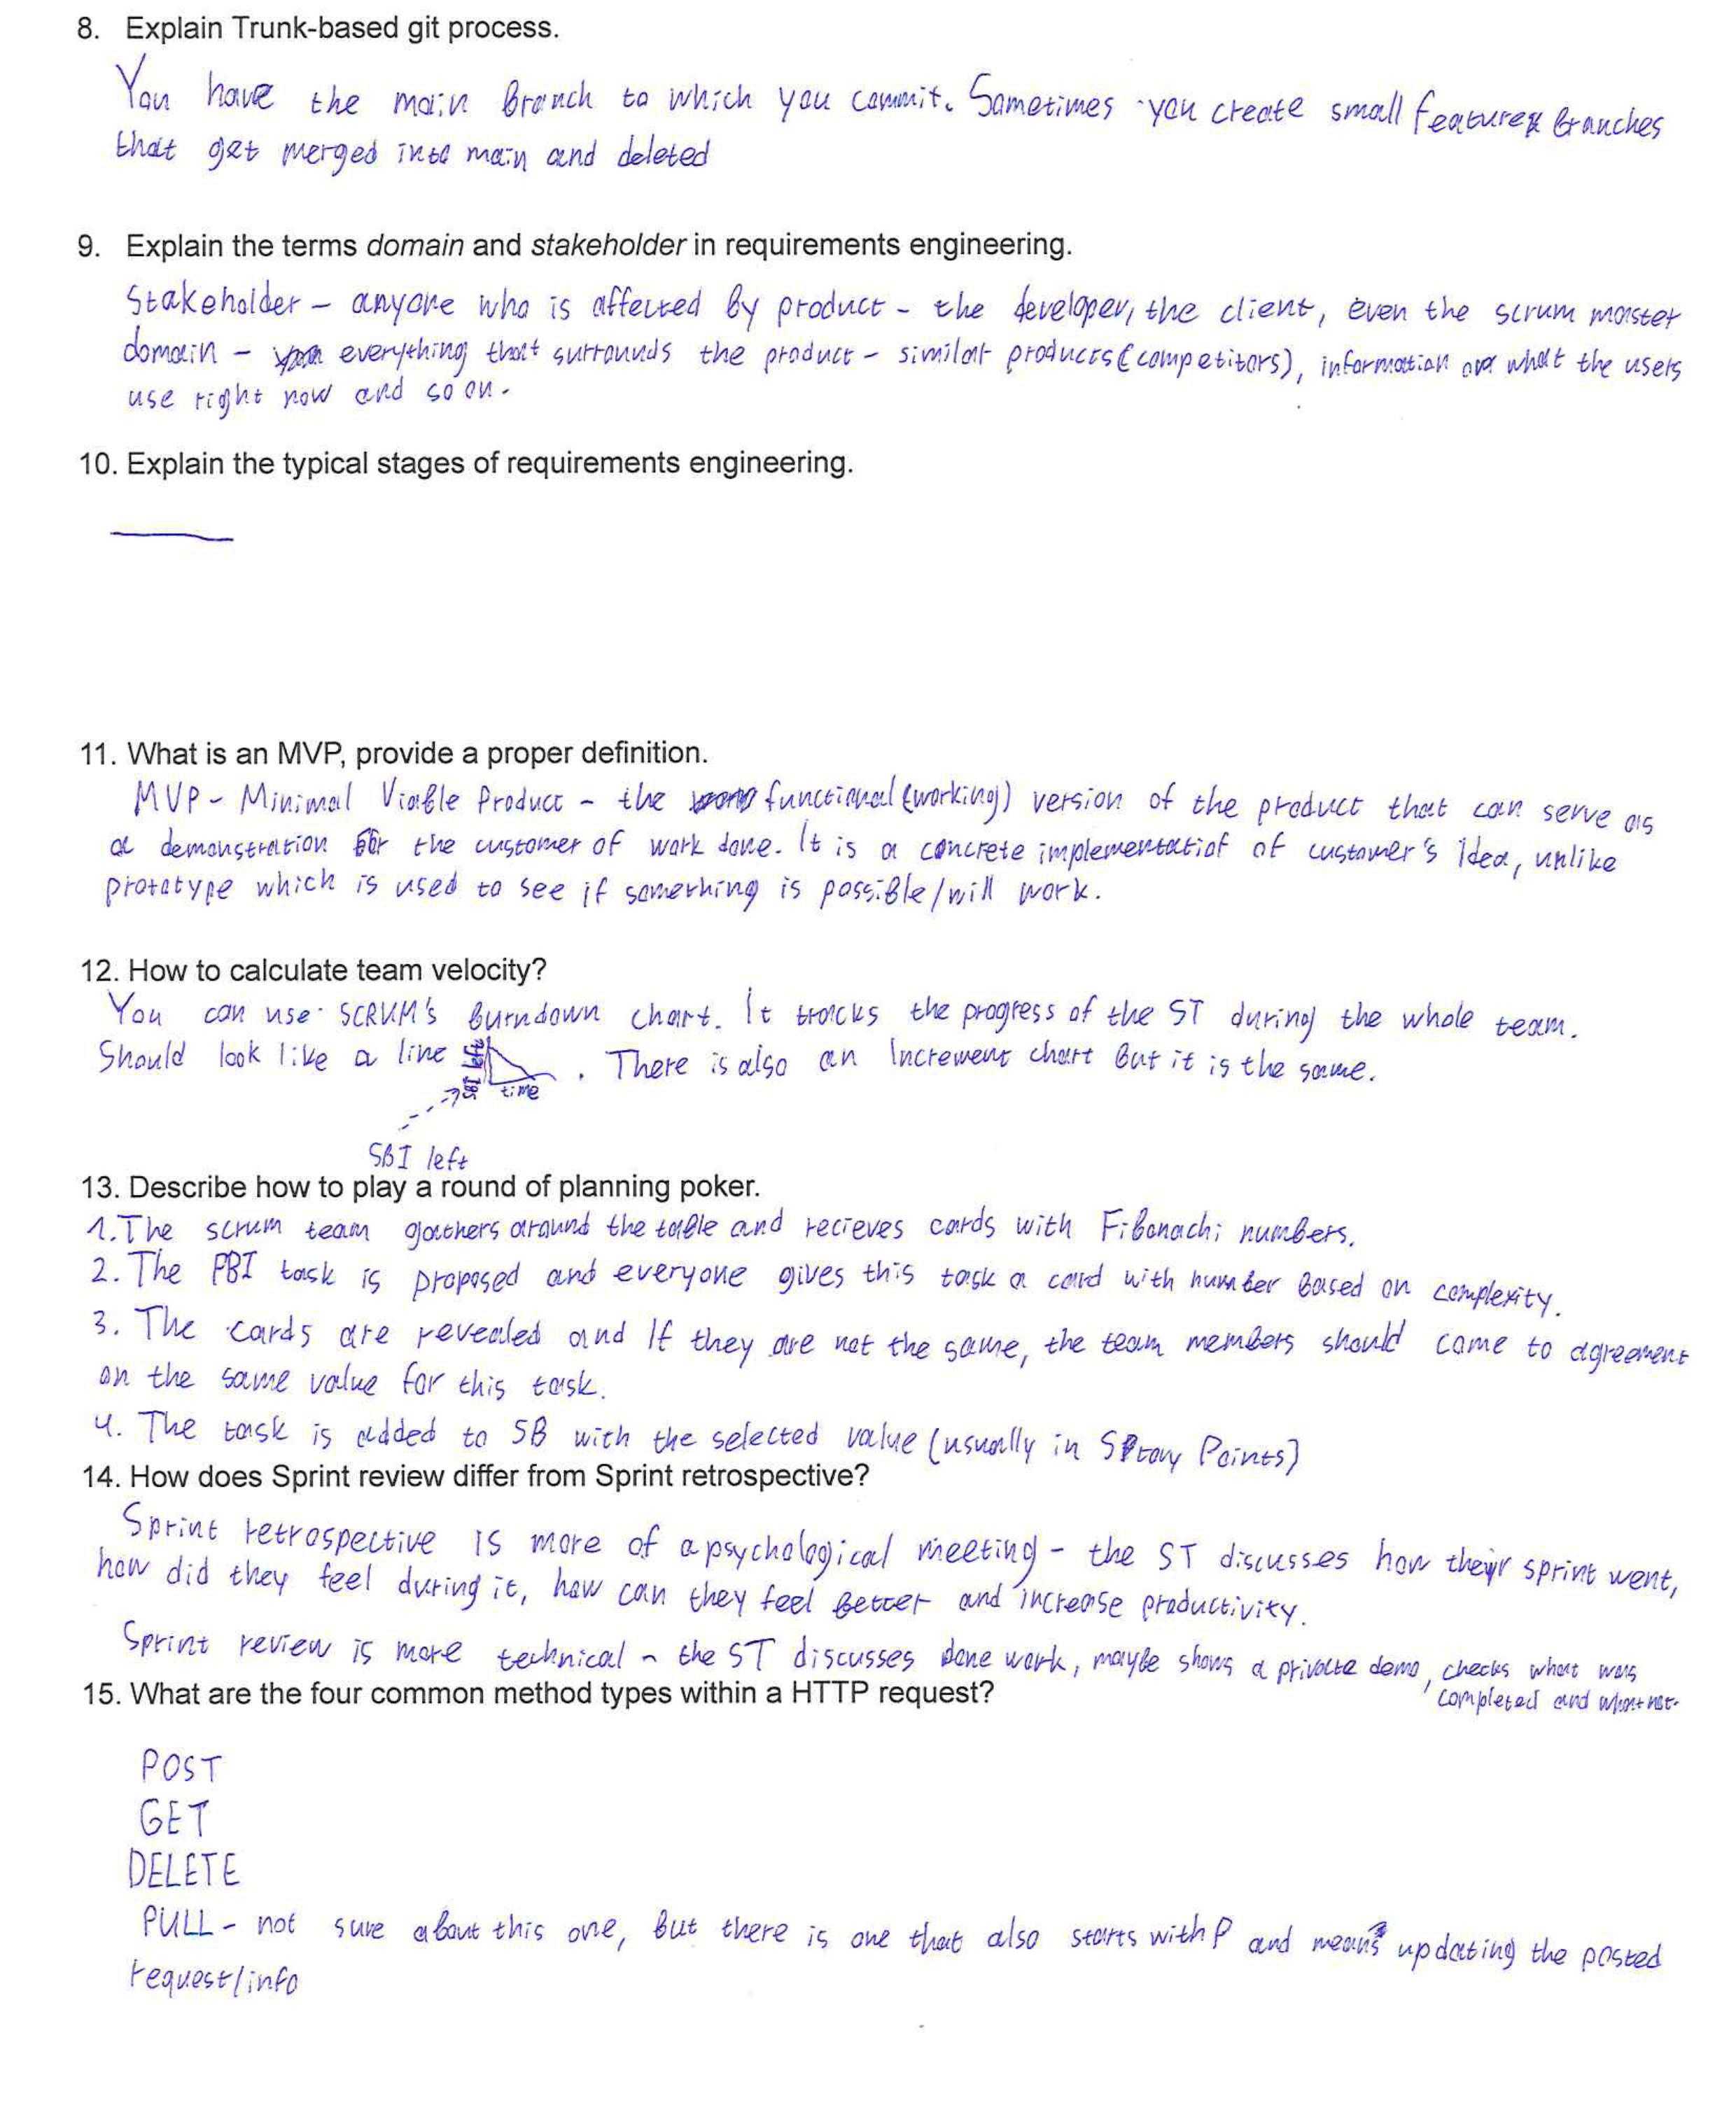 8. Explain Trunk-based git process.
You have the main branch to which you commit. Sometimes you create small feature branches
that get merged into main and deleted
9. Explain the terms domain and stakeholder in requirements engineering.
Stakeholder - anyone who is affected by product - the developer, the client, even the scrum master
domain - everything that surrounds the product - similar products (competitors), information on what the users
use right now and so on.
10. Explain the typical stages of requirements engineering.
11. What is an MVP, provide a proper definition.
MVP - Minimal Viable Product - the functional (working) version of the product that can serve as
a demonstration for the customer of work done. It is a concrete implementatiof of customer's idea, unlike
prototype which is used to see if something is possible/will work.
12. How to calculate team velocity?
You can use SCRUM's burndown chart. It tracks the progress of the ST during the whole team.
Should look like a line SBI left time . There is also an Increment chart but it is the same.
SBI left
13. Describe how to play a round of planning poker.
1. The scrum team gathers around the table and recieves cards with Fibonachi numbers.
2. The PBI task is proposed and everyone gives this task a card with number based on complexity.
3. The cards are revealed and If they are not the same, the team members should come to agreement
on the same value for this task.
4. The task is added to SB with the selected value (usually in Story Points)
14. How does Sprint review differ from Sprint retrospective?
Sprint retrospective is more of a psychological meeting - the ST discusses how their sprint went,
how did they feel during it, how can they feel better and increase productivity.
Sprint review is more technical - the ST discusses done work, maybe shows a private demo, checks what was
completed and what not.
15. What are the four common method types within a HTTP request?
POST
GET
DELETE
PULL - not sure about this one, but there is one that also starts with P and means updating the posted
request/info